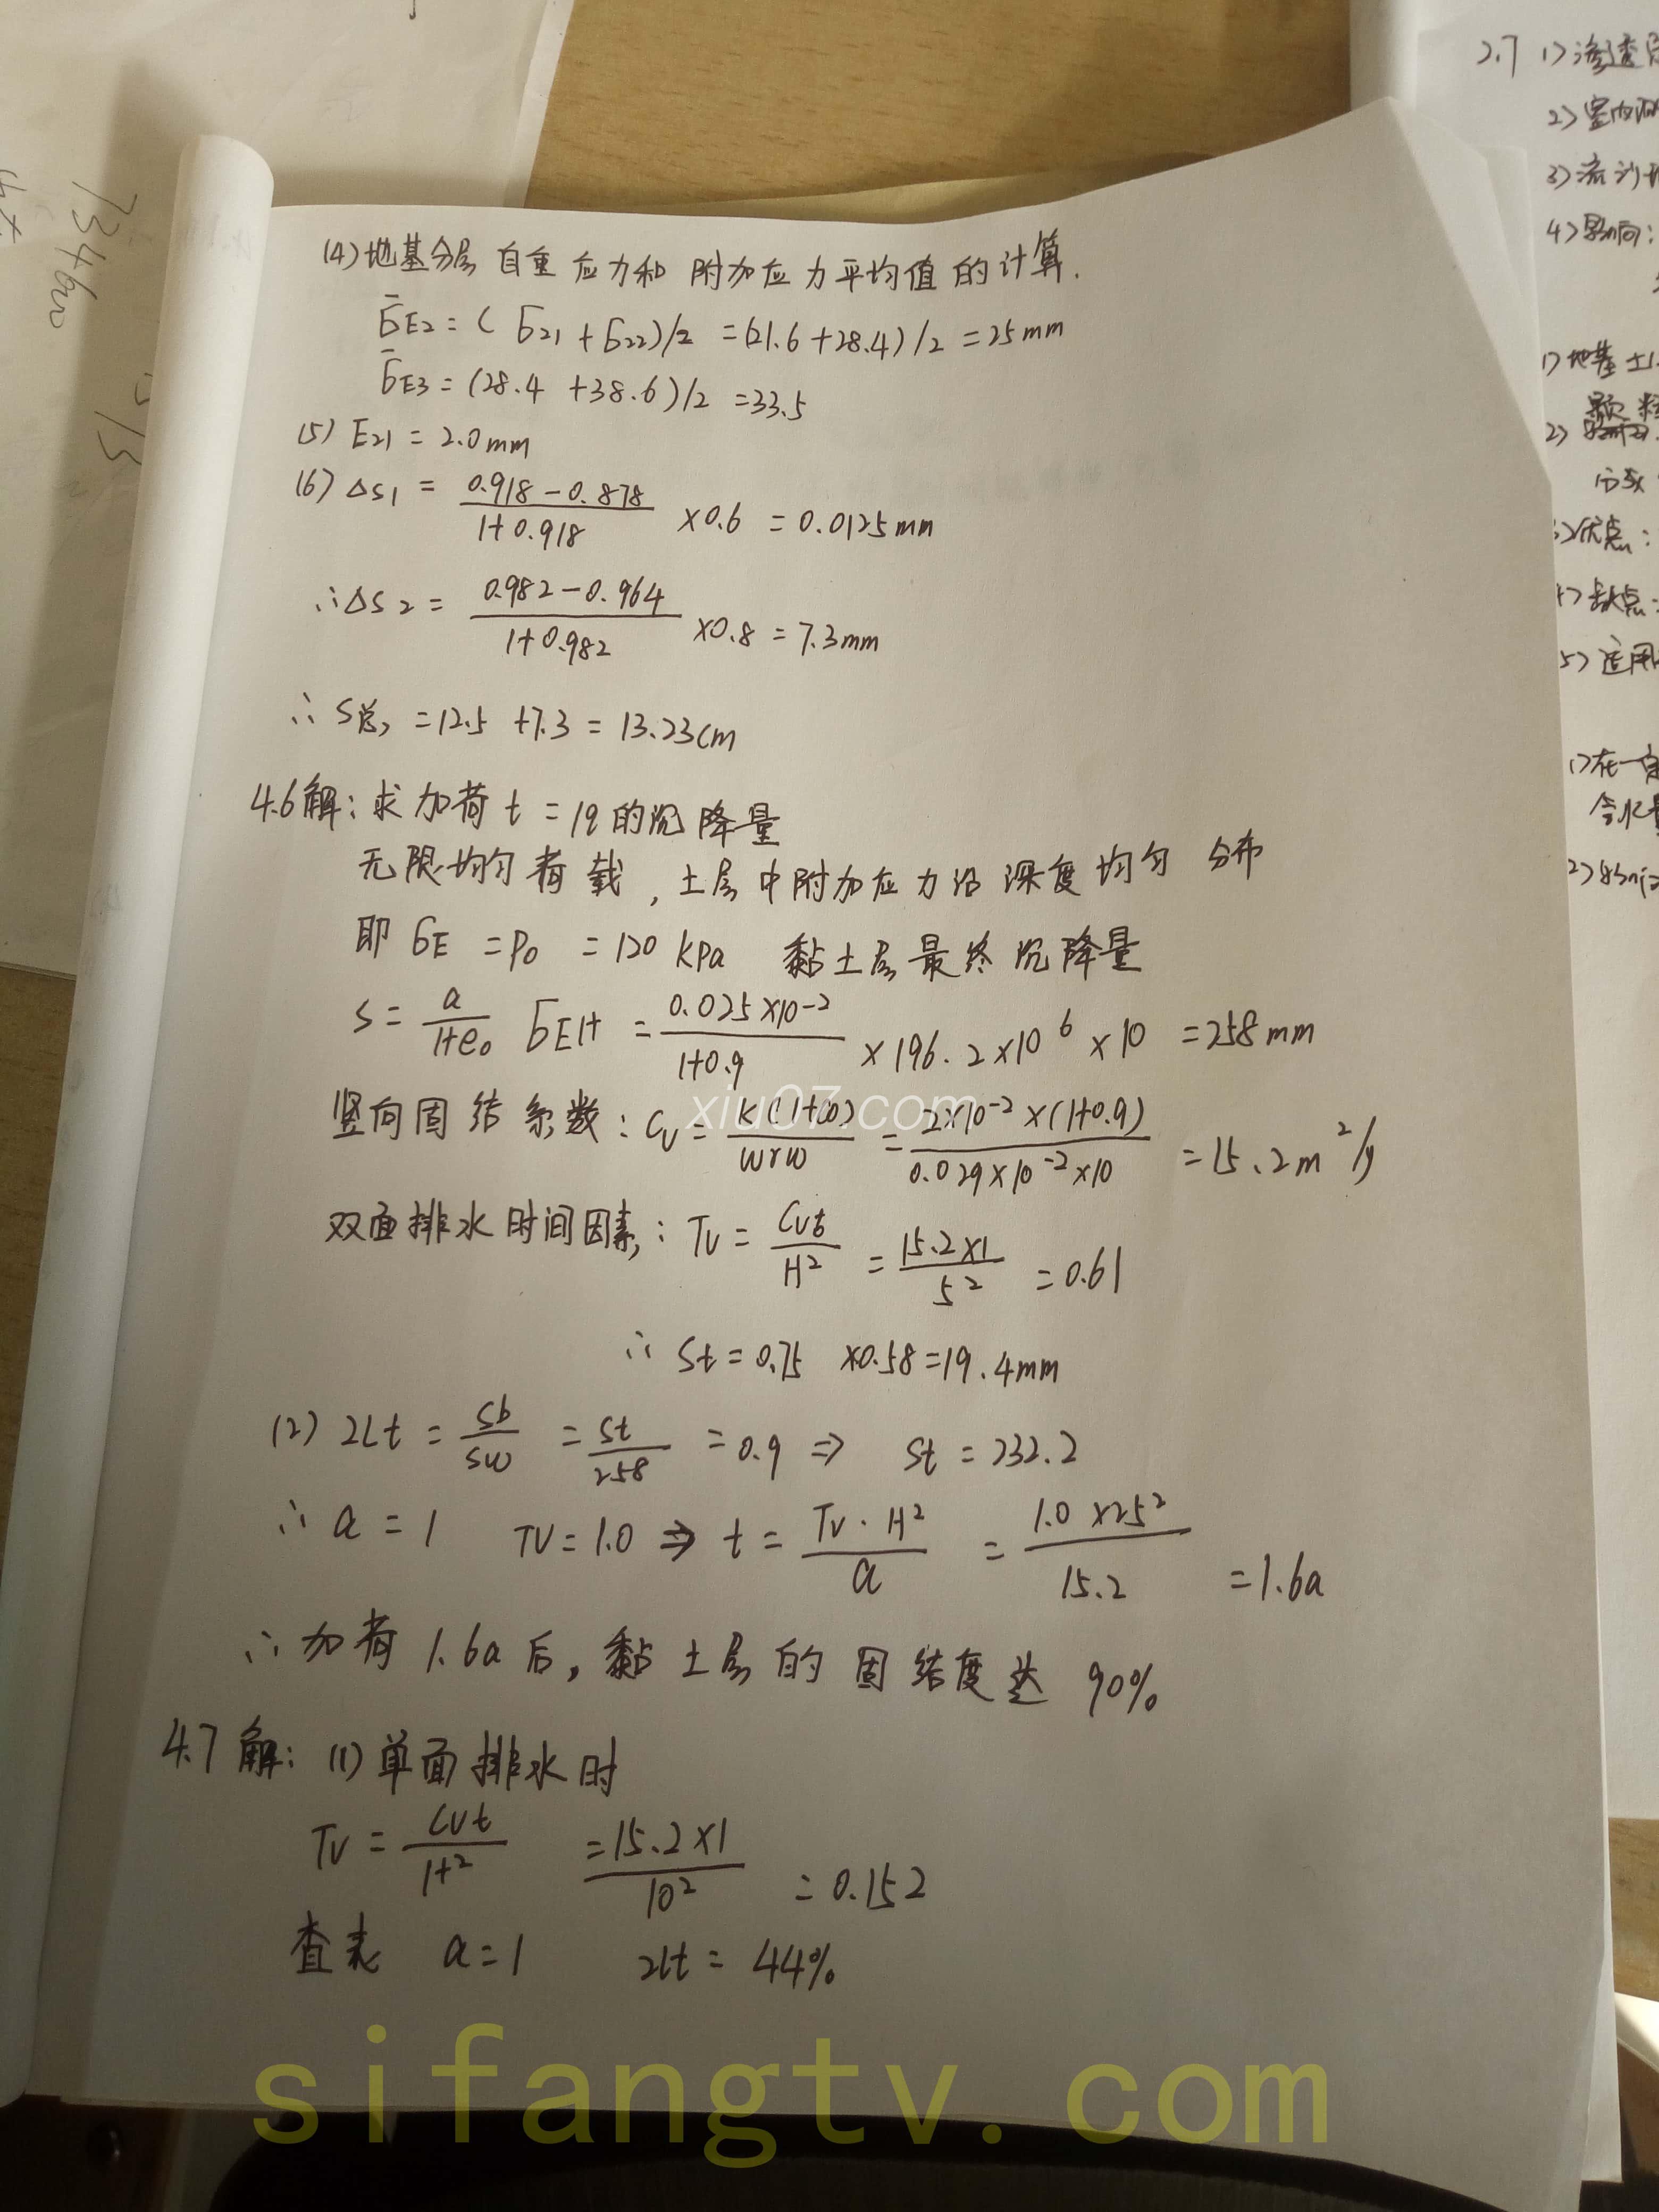 (4)地基分层自重应力和附加应力平均值的计算.
σ̄E2=(σ21+σ22)/2=(21.6+28.4)/2=25mm
σ̄E3=(28.4+38.6)/2=33.5
(5) E21=2.0mm
(6) Δs1=(0.918-0.878)/(1+0.918)×0.6=0.0125mm
∴Δs2=(0.982-0.964)/(1+0.982)×0.8=7.3mm
∴S总=12.5+7.3=13.23cm
4.6解:求加荷t=1a的沉降量
无限均匀荷载,土层中附加应力沿深度均匀分布
即σE=P0=120kPa 黏土层最终沉降量
S=a/(1+e0) σEH=(0.025×10-2)/(1+0.9)×196.2×10^6×10=258mm
竖向固结系数:Cv=K(1+e0)/wrw=2×10-2×(1+0.9)/(0.029×10-2×10)=15.2m²/y
双面排水时间因素:Tv=Cvt/H²=15.2×1/5²=0.61
∴St=0.75×0.58=19.4mm
(2) 2Lt=Sb/Sw=St/258=0.9⇒St=232.2
∴a=1 TV=1.0⇒t=Tv·H²/a=1.0×25²/15.2=1.6a
∴加荷1.6a后,黏土层的固结度达90%
4.7解:(1)单面排水时
Tv=Cvt/H²=15.2×1/10²=0.152
查表 a=1 2Lt=44%
2.7 1>渗透
2>室内
3>流沙
4>影响:
1>地基土
颗粒
2>
3>优点:
4>缺点:
5>适用
1>在一定
含水量
2>
734600
xiu07.com
sifangtv.com